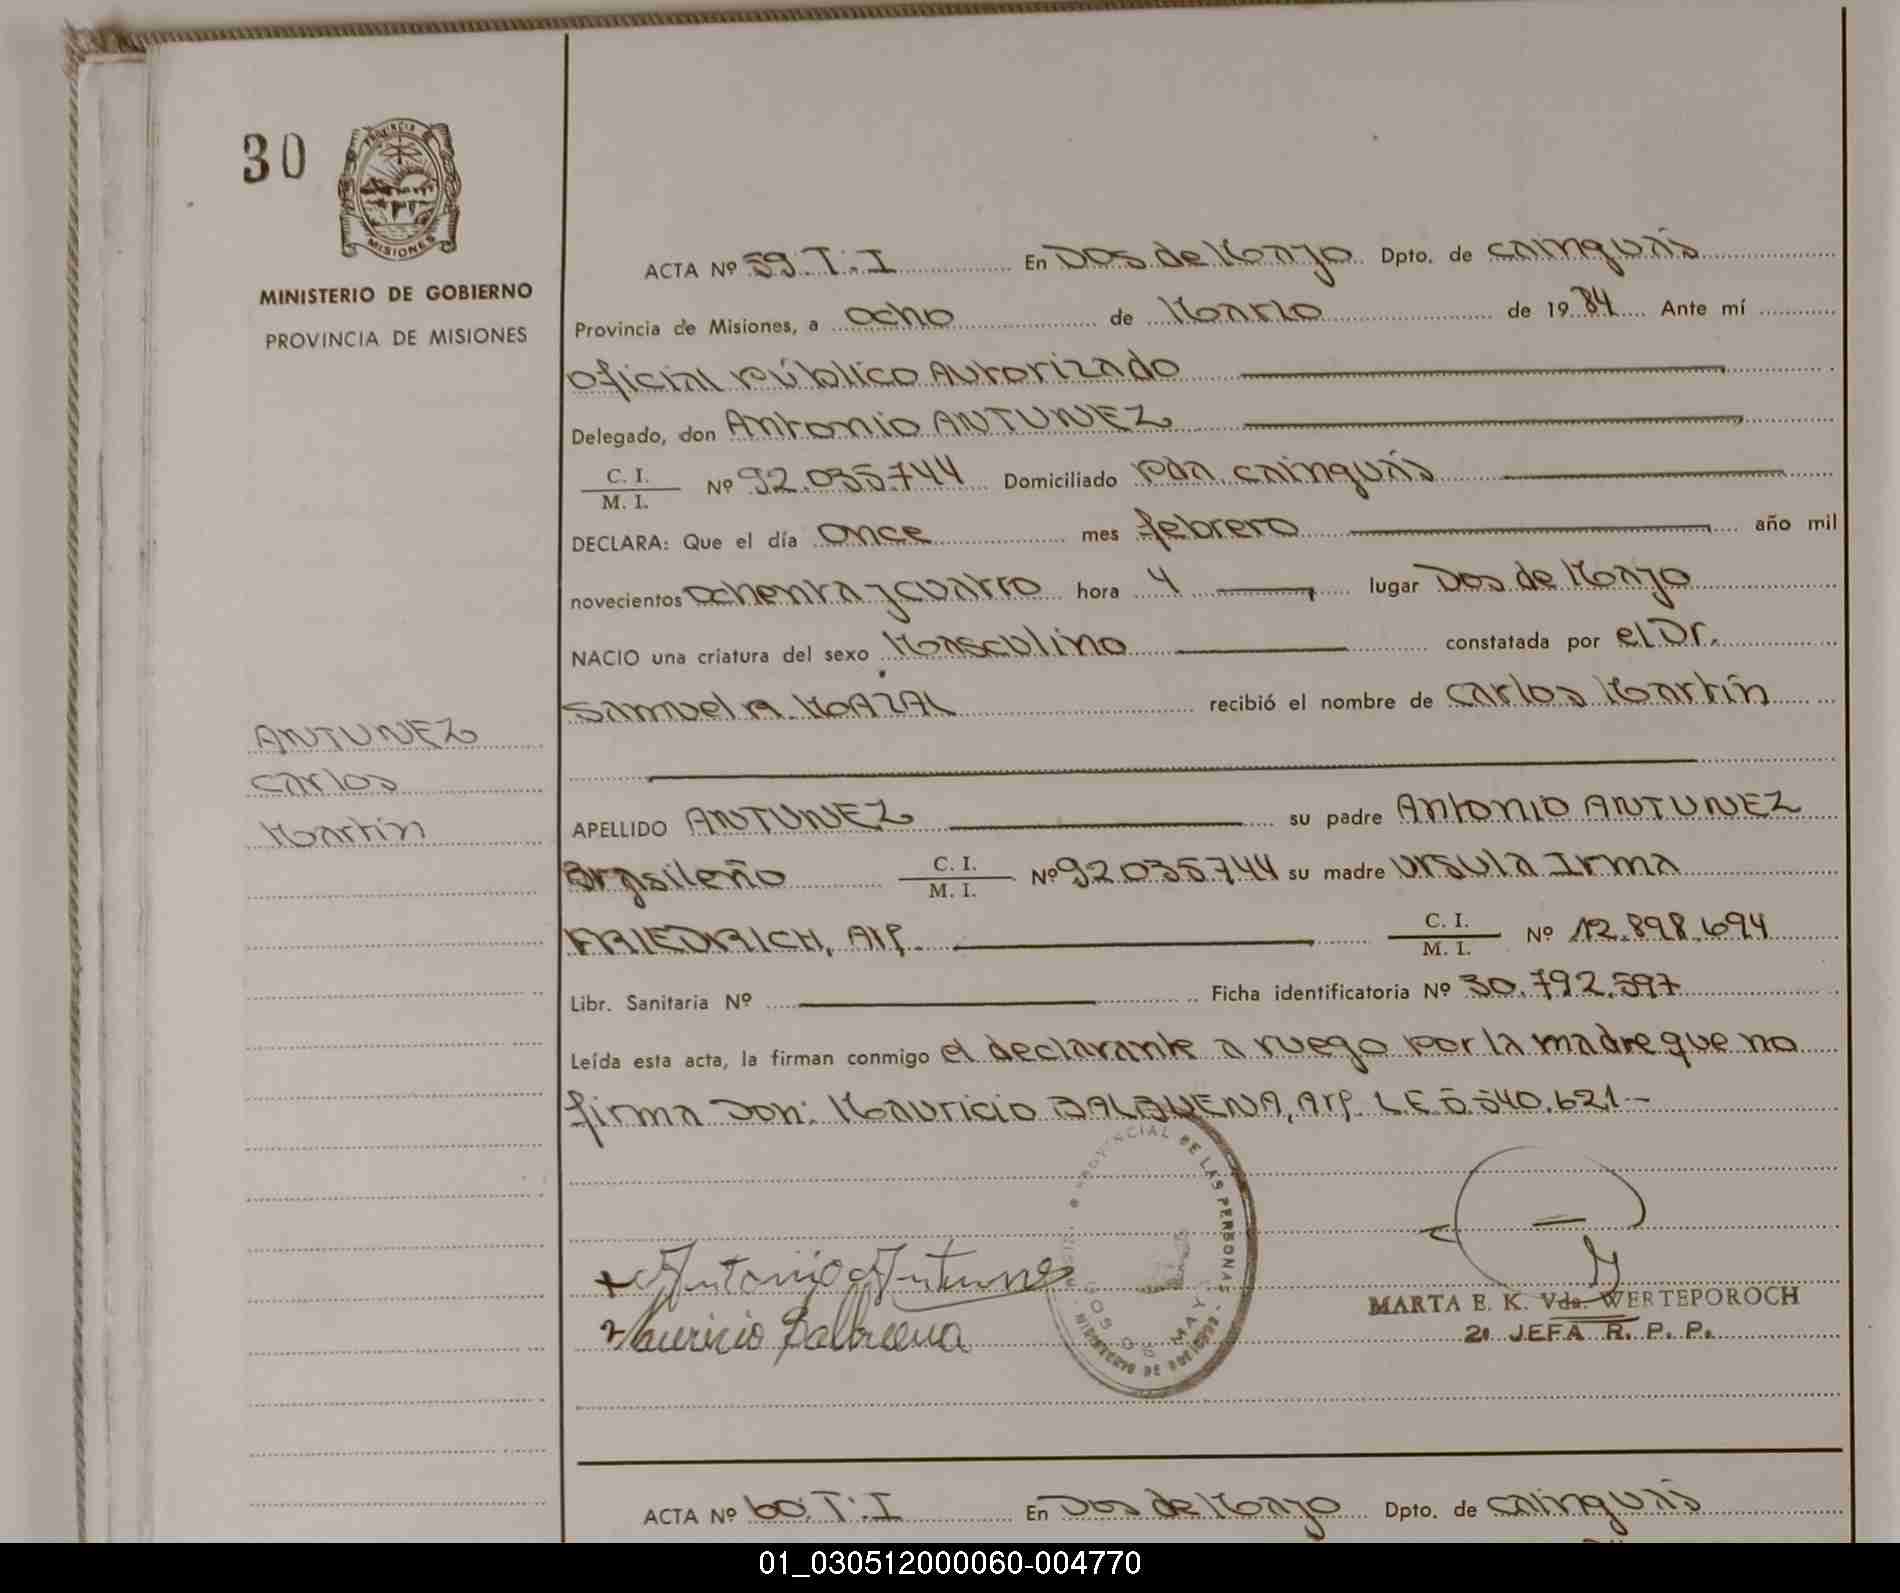 30
PROVINCIA DE
MISIONES
MINISTERIO DE GOBIERNO
PROVINCIA DE MISIONES
ANTUNEZ
Carlos
Martín
ACTA Nº 59.T:I En Dos de Mayo Dpto. de Cainguás
Provincia de Misiones, a ocho de Marzo de 1984 Ante mí
Oficial Público Autorizado
Delegado, don Antonio ANTUNEZ
C. I.
M. I. Nº 92.035.744 Domiciliado Pda. Cainguás
DECLARA: Que el día once mes febrero año mil
novecientos ochenta y cuatro hora 4 lugar Dos de Mayo
NACIO una criatura del sexo Masculino constatada por el Dr.
Samuel A. MAZAL recibió el nombre de Carlos Martín
APELLIDO ANTUNEZ su padre Antonio ANTUNEZ
Brasileño C. I.
M. I. Nº 92.035.744 su madre Ursula Irma
FRIEDRICH, Arg. C. I.
M. I. Nº 12.898.694
Libr. Sanitaria Nº Ficha identificatoria Nº 30.792.597
Leída esta acta, la firman conmigo el declarante a ruego por la madre que no
firma Don: Mauricio BALBUENA, Arg. L.E 5.540.621-
PROVINCIAL DE LAS PERSONAS
DOS DE MAYO
MINISTERIO DE
Antonio Antunes
Mauricio Balbuena
MARTA E. K. Vda. WERTEPOROCH
2ª JEFA R. P. P.
ACTA Nº 60.T:I En Dos de Mayo Dpto. de Cainguás
01_030512000060-004770